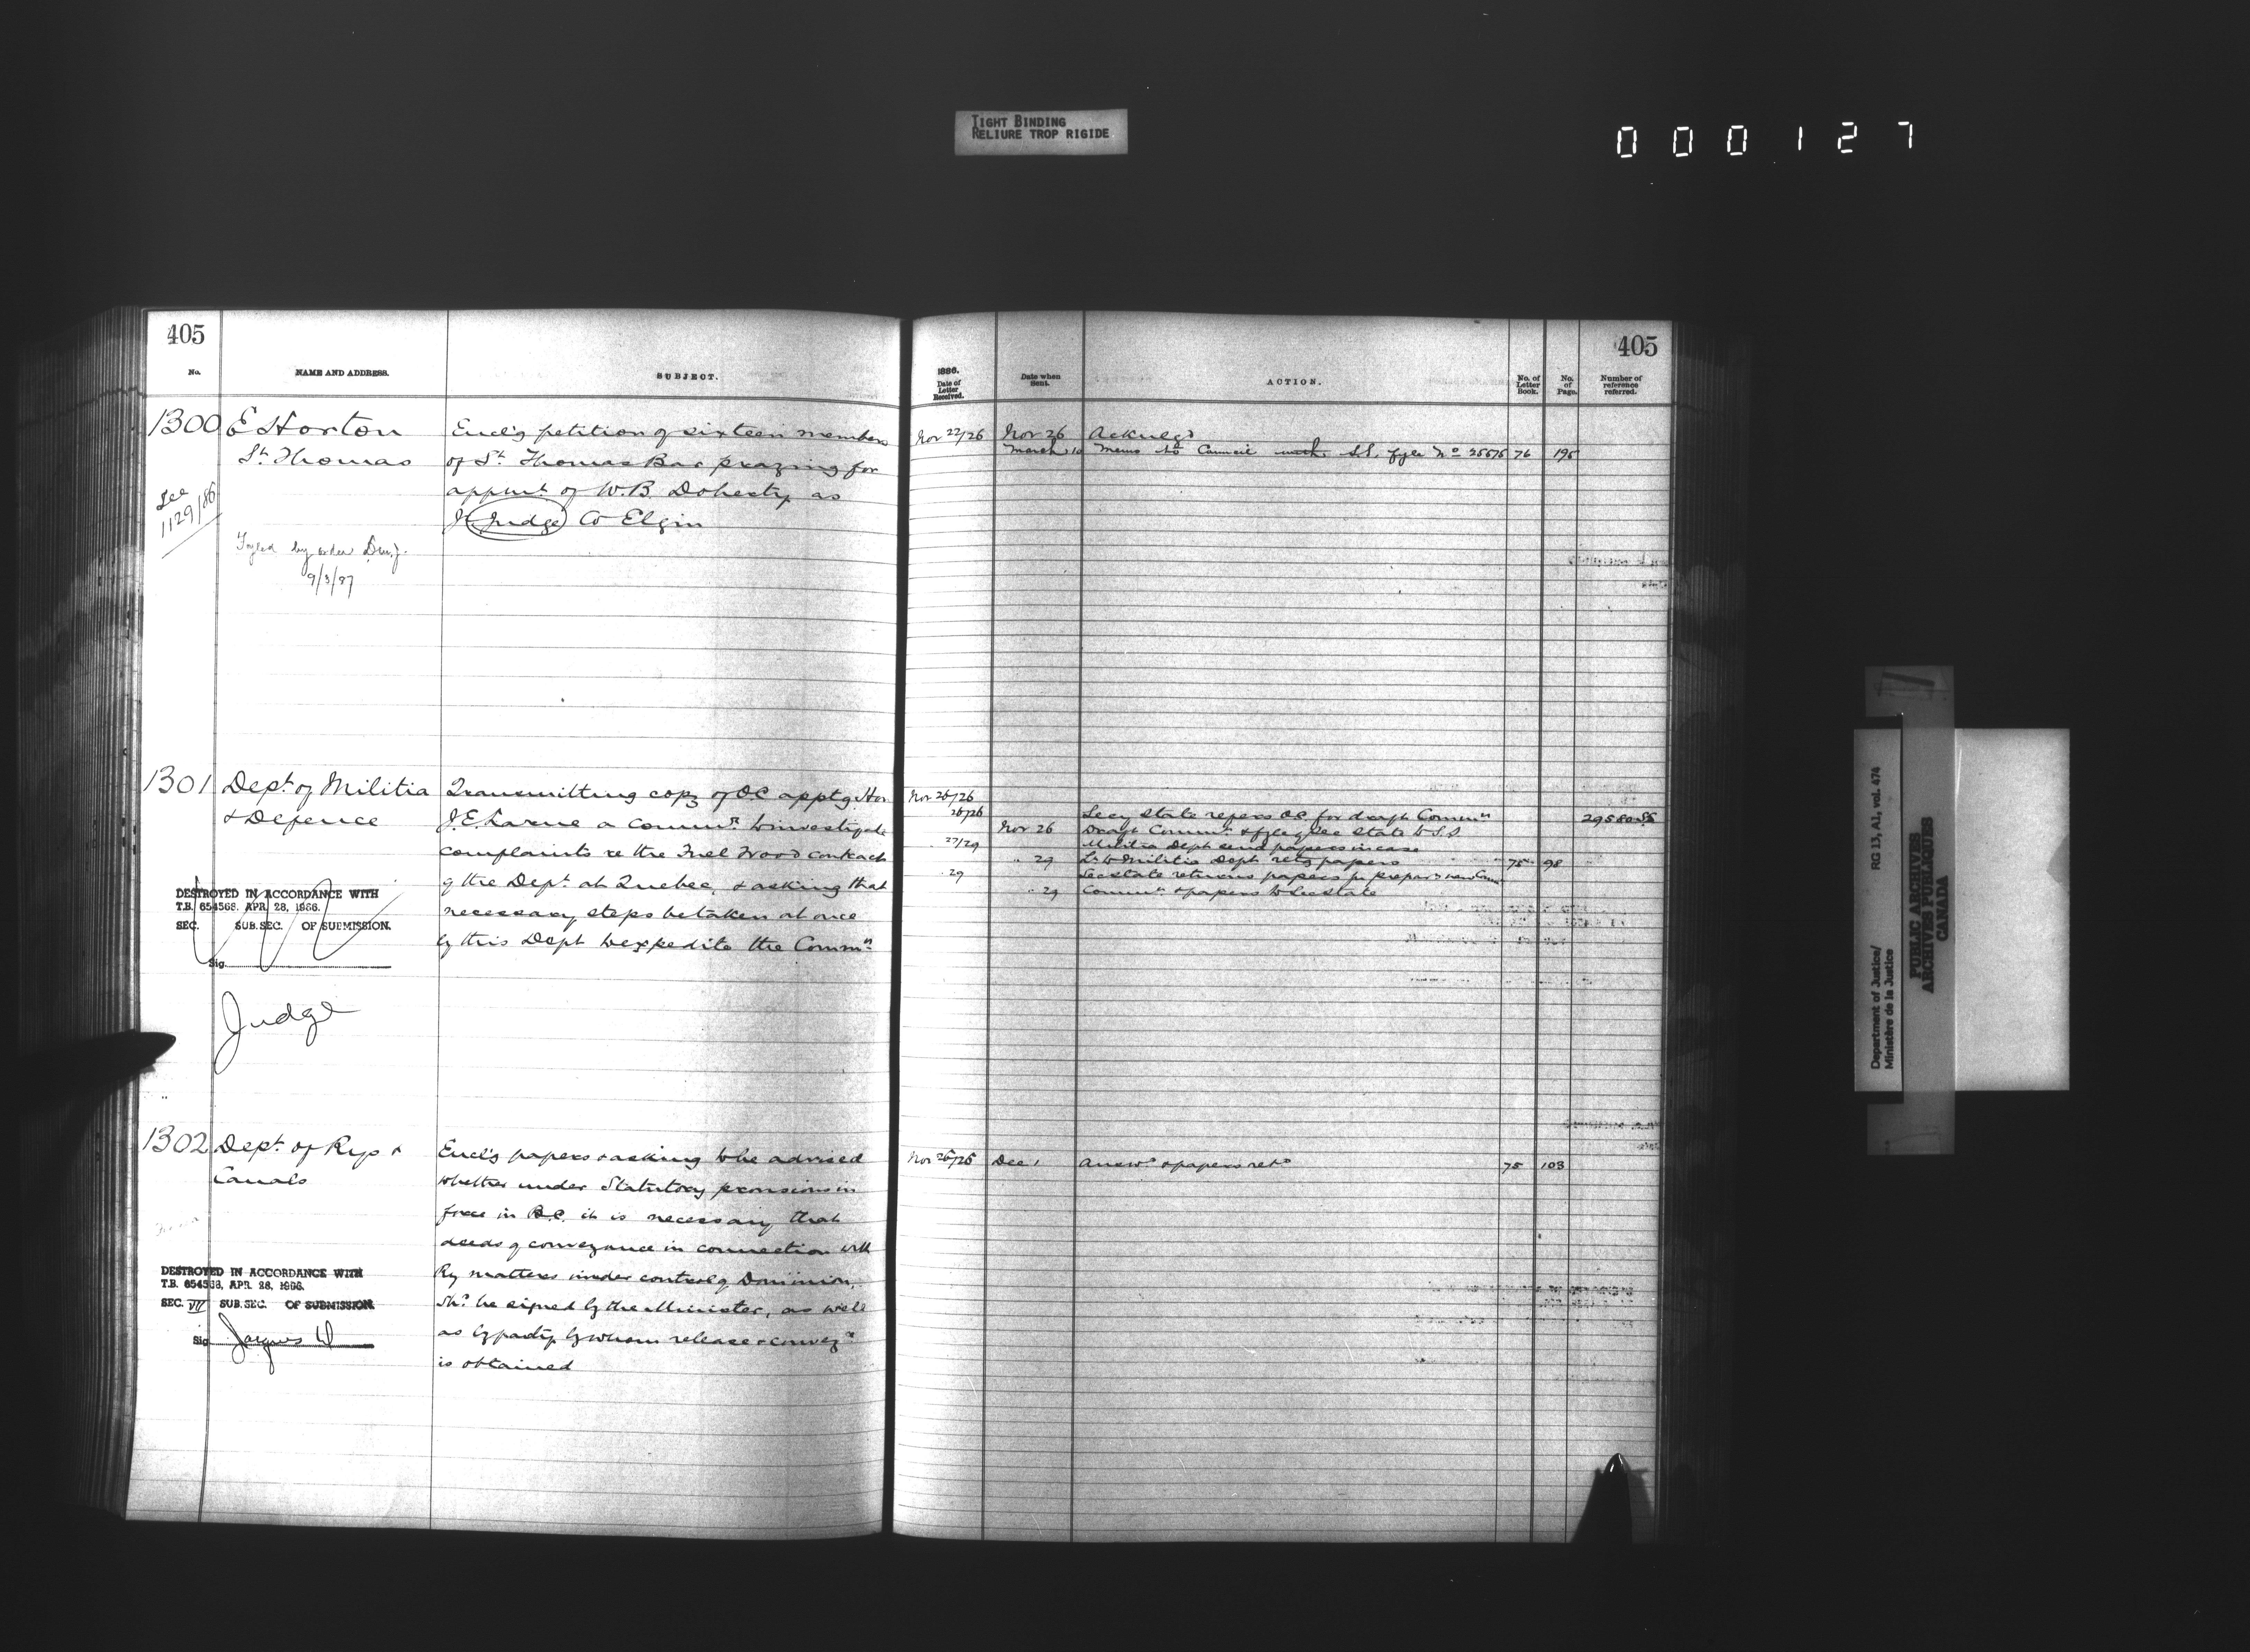 TIGHT BINDING
RELIURE TROP RIGIDE
000127
405
No.
NAME AND ADDRESS.
SUBJECT.
1300
E Horton
St. Thomas
See
1129/86
Fyled by order D.M.J.
9/3/87
Encl'g petition of sixteen members
of St. Thomas Bar praying for
appmt. of W.B. Doherty as
Jr Judge Co Elgin
1301
Dept. of Militia
& Defence
DESTROYED IN ACCORDANCE WITH
T.B. 654568. APR. 28, 1966.
SEC. SUB.SEC. OF SUBMISSION.
Sig.
Judge
Transmitting copy of O.C. apptg Hon
J.E. Larue a Commr. to investigate
complaints re the Fuel Wood contract
of the Dept. at Quebec, & asking that
necessary steps be taken at once
by this Dept to expedite the Commn.
1302
Dept. of Rys &
Canals
DESTROYED IN ACCORDANCE WITH
T.B. 654568, APR. 28, 1966.
SEC. VII SUB.SEC. OF SUBMISSION.
Sig. Jacques D
Encl'g papers & asking to be advised
whether under Statutory provisions in
force in B.C. it is necessary that
deeds of conveyance in connection with
Ry matters under control of Dominion,
shd. be signed by the Minister, as well
as by party by whom release & convey
is obtained
405
1886.
Date of
Letter
Received.
Date when
Sent.
ACTION.
No. of
Letter
Book.
No.
of
Page.
Number of
reference
referred.
Nov 22/26 Nov 26 Acknlgd
March 10 Memo to Council with S.S. fyle No 25675 76 195
Nov 26/26
26/26 Secy State refers OC for draft Commn 29580 SS
Nov 26 Draft Commn. & fyle of Sec State to S.S.
27/29 Militia Dept send papers in case
" 29 Lr to Militia Dept retg papers 75 98
29 Sec state returns papers for prepar of new Comn
" 29 Commn. & papers to Sec state
Nov 26/26 Dec 1 Answd & papers retd 75 103
Department of Justice/
Ministère de la Justice
RG 13, A1, vol. 474
PUBLIC ARCHIVES
ARCHIVES PUBLIQUES
CANADA